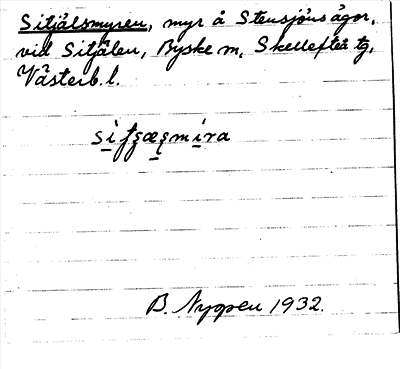 Sitjälsmyren, myr å Stensjöns ägor,
vid Sitjälen, Byske sn, Skellefteå tg,
Västerb. l.
B. Nyppeu 1932.